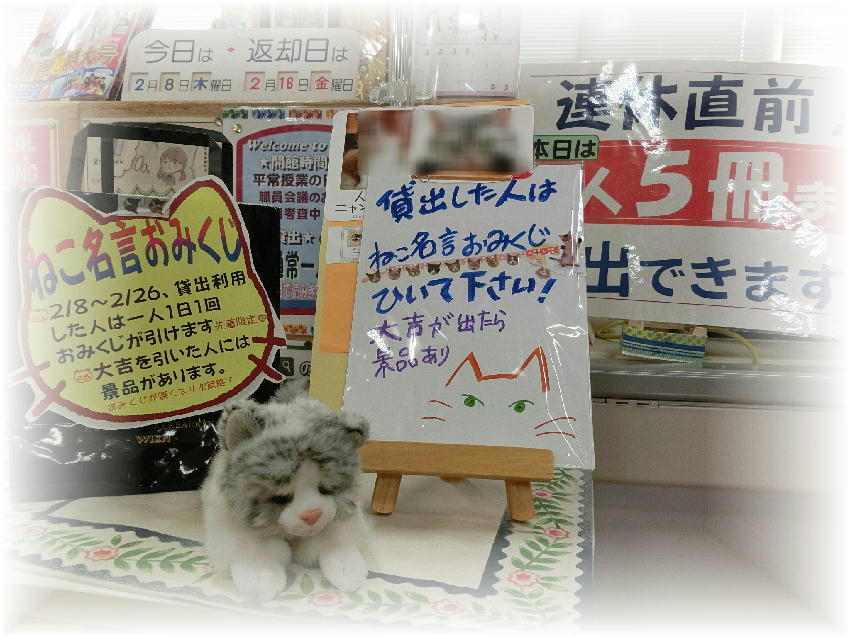 今日は・返却日は
2月8日木曜日 2月16日金曜日
連休直前
本日は
5冊ま
出できます
Welcome to
★開館時間
平常授業の
職員会議の
考査中
貸出
ねこ名言おみくじ
2/8～2/26、貸出利用
した人は一人1日1回
おみくじが引けます 先着限定
大吉を引いた人には
景品があります。
おみくじが無くなり次第終了
貸出した人は
ねこ名言おみくじ
ひいて下さい!
大吉が出たら
景品あり
WIEN